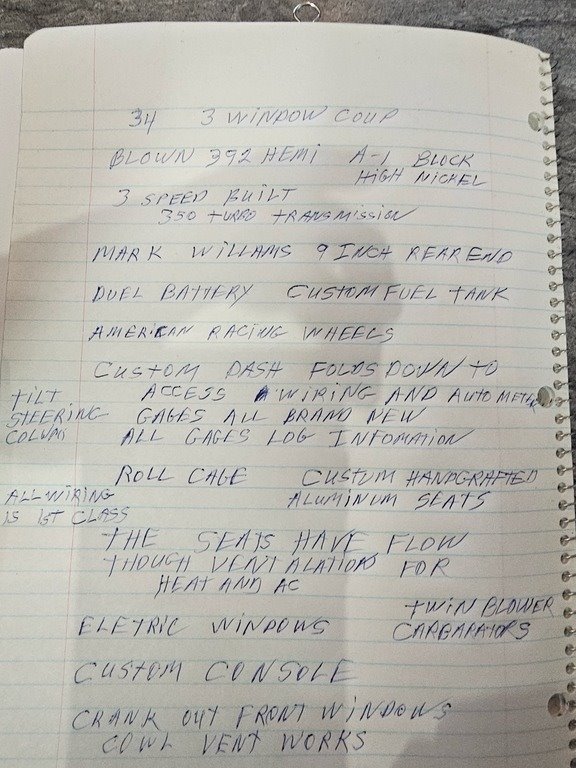 34 3 WINDOW COUP
BLOWN 392 HEMI A-1 BLOCK
HIGH NICKEL
3 SPEED BUILT
350 TURBO TRANSMISSION
MARK WILLAMS 9 INCH REAR END
DUEL BATTERY CUSTOM FUEL TANK
AMERICAN RACING WHEELS
CUSTOM DASH FOLDS DOWN TO
ACCESS WIRING AND AUTO METER
GAGES ALL BRAND NEW
ALL GAGES LOG INFOMATION
TILT
STEERING
COLUMN
ROLL CAGE CUSTUM HANDGRAFTED
ALUMINUM SEATS
ALL WIRING
IS 1ST CLASS
THE SEATS HAVE FLOW
THOUGH VENTALATION FOR
HEAT AND AC
ELETRIC WINDOWS
TWIN BLOWER
CARBARATORS
CUSTOM CONSOLE
CRANK OUT FRONT WINDOWS
COWL VENT WORKS